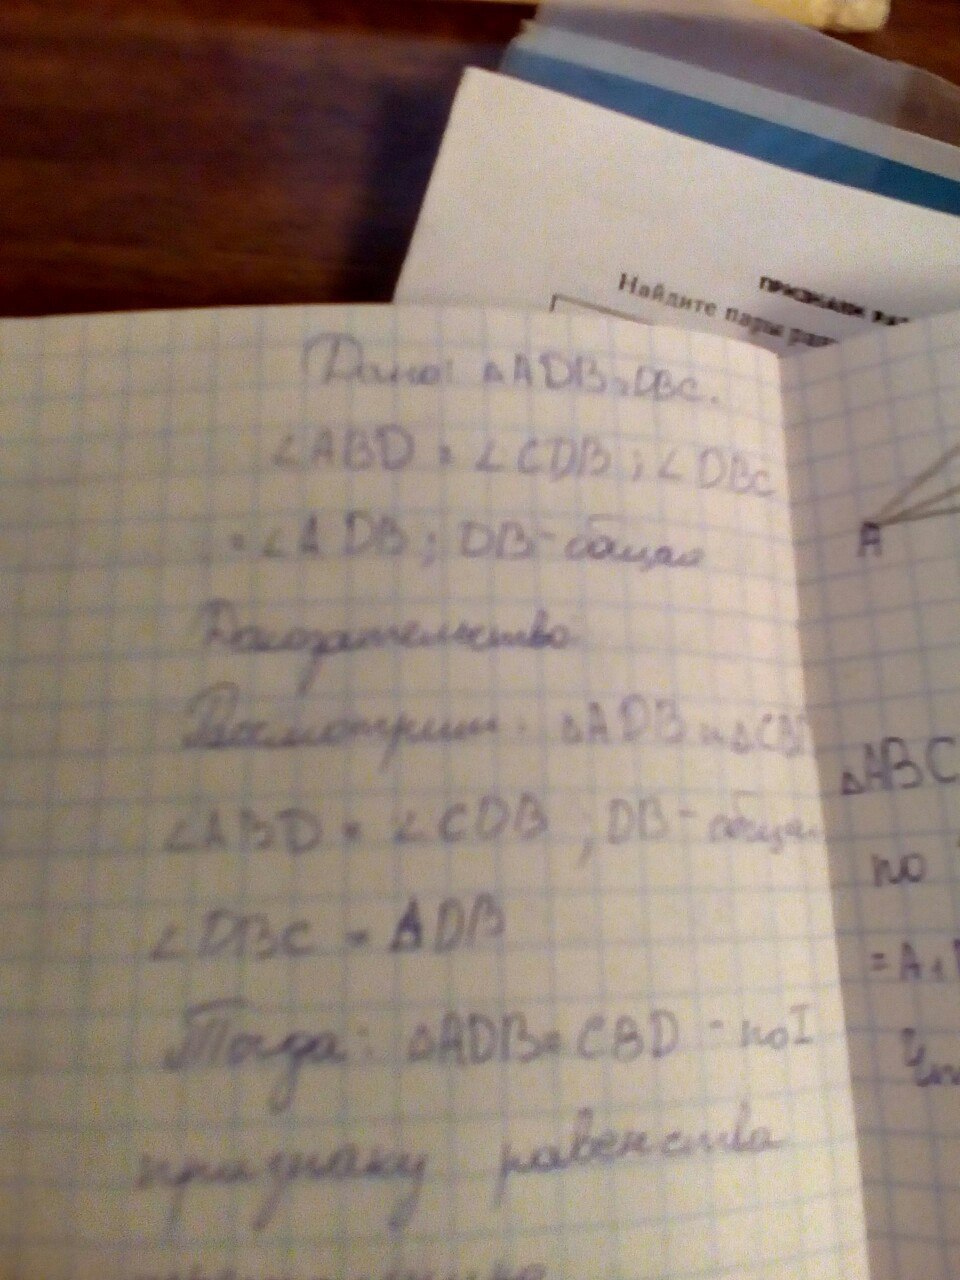 ПРИЗНАКИ РАВ
Найдите пары рав
Дано: ΔADB = DBC.
∠ABD = ∠CDB ; ∠DBC
= ∠ADB ; DB - общая
Доказательство
Рассмотрим: ΔADB и ΔCBD
∠ABD = ∠CDB ; DB - общая
∠DBC = ADB
Тогда: ΔADB = CBD - по I
признаку равенства
A
ΔABC
по
= A₁